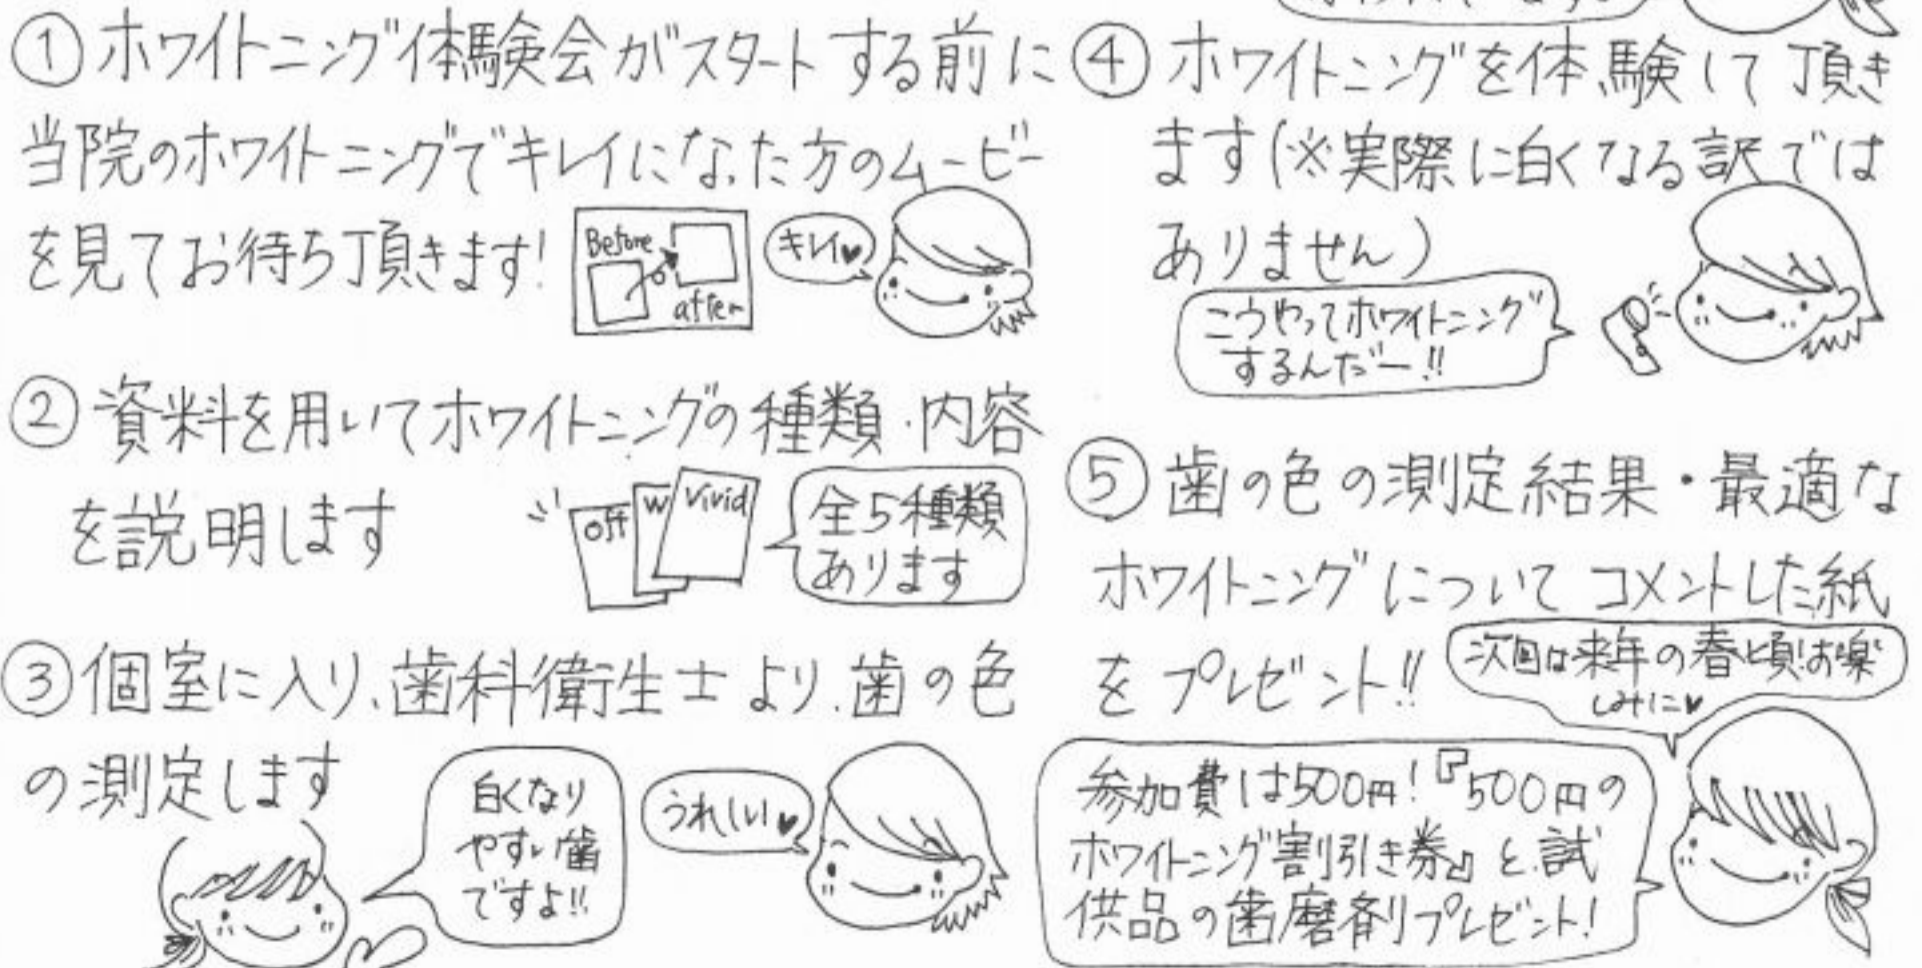 ①ホワイトニング体験会がスタートする前に
当院のホワイトニングでキレイになった方のムービー
を見てお待ち頂きます!
Before
after
キレイ♥
②資料を用いてホワイトニングの種類・内容
を説明します
off
W
Vivid
全5種類
あります
③個室に入り、歯科衛生士より、歯の色
の測定します
白くなり
やすい歯
ですよ!!
うれしい♥
④ホワイトニングを体験して頂き
ます(※実際に白くなる訳では
ありません)
こうやってホワイトニング
するんだー!!
⑤歯の色の測定結果・最適な
ホワイトニングについてコメントした紙
をプレゼント!!
次回は来年の春頃!お楽
しみに♥
参加費は500円!『500円の
ホワイトニング割引き券』と試
供品の歯磨剤プレゼント!